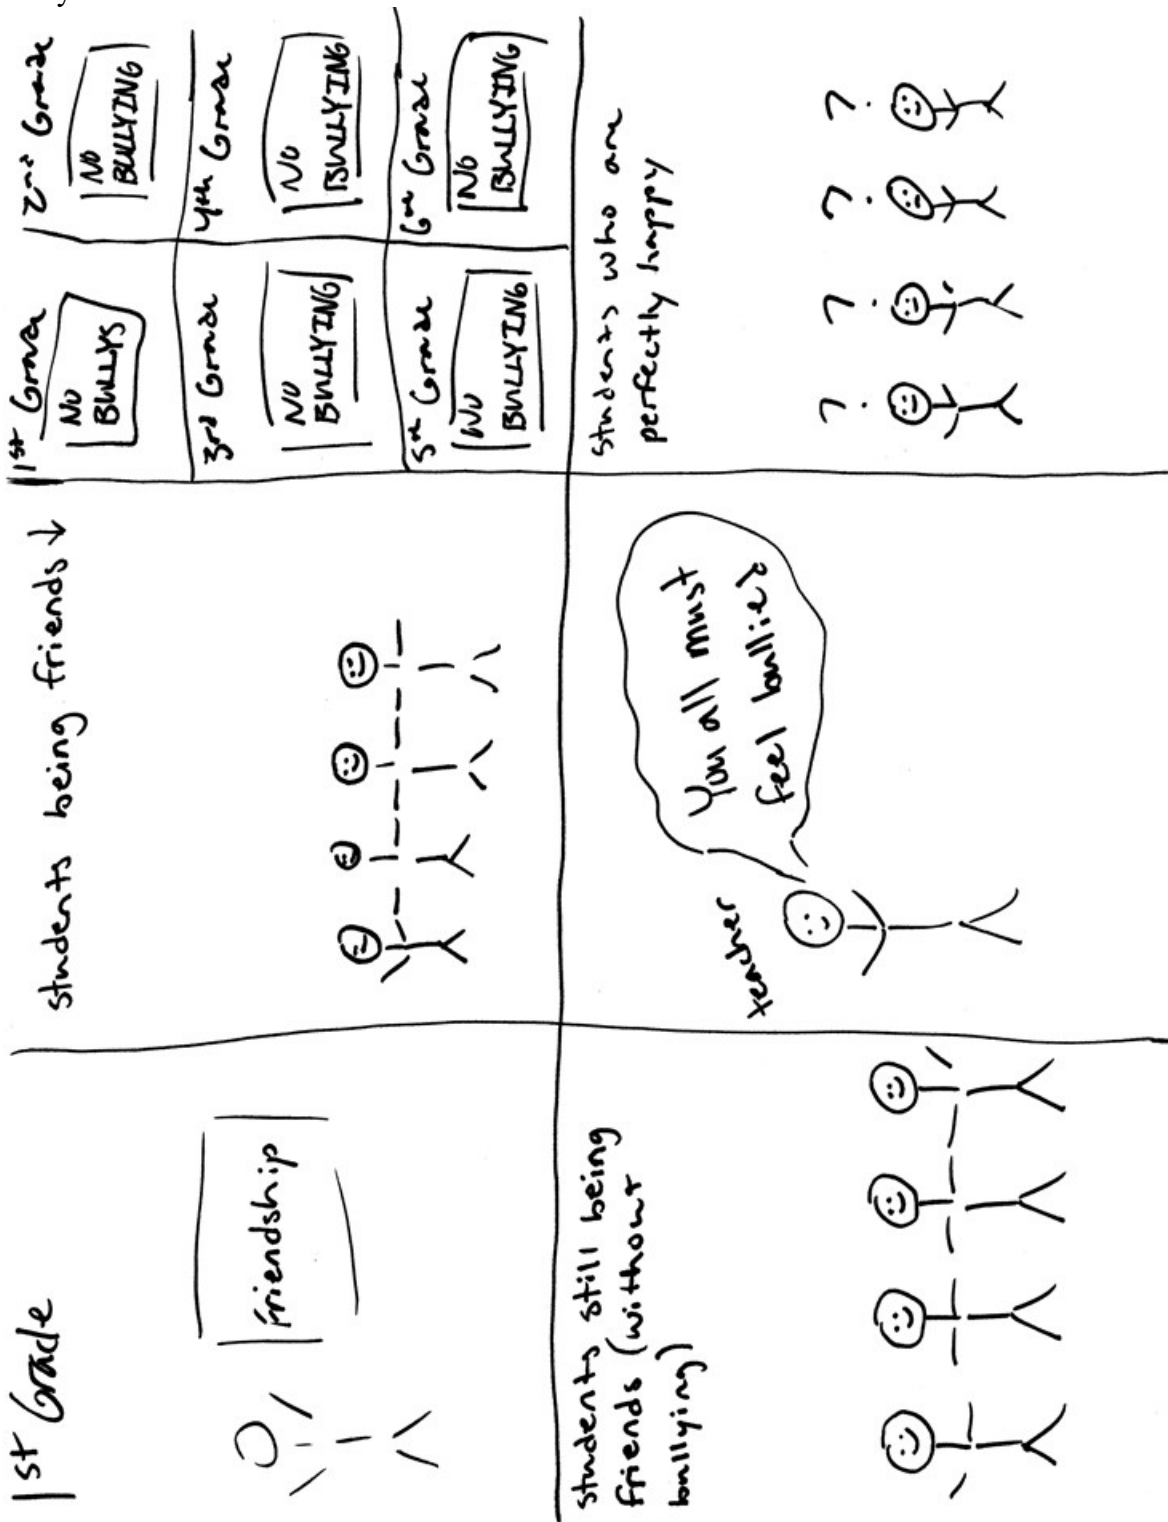 1st Grade
Friendship
students being friends ↓
1st Grade
NO
BULLYS
2nd Grade
NO
BULLYING
3rd Grade
NO
BULLYING
4th Grade
NO
BULLYING
5th Grade
NO
BULLYING
6th Grade
NO
BULLYING
students still being
friends (without
bullying)
teacher
You all must
feel bullied
students who are
perfectly happy
? ? ? ?